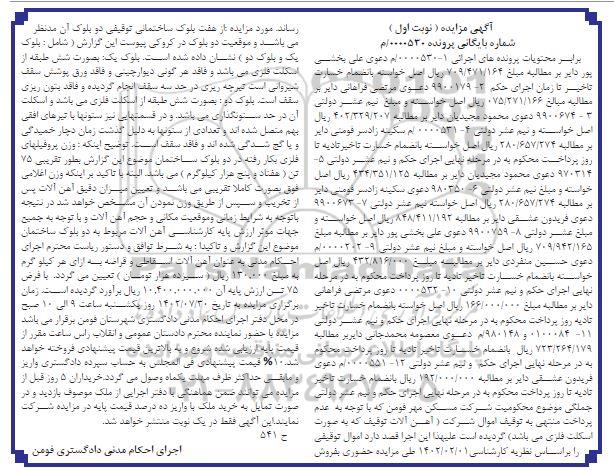 آگهی مزایده ( نوبت اول )
شماره بایگانی پرونده ۰۰۰۰۵۳۰/م
برابر محتویات پرونده های اجرائی ۱-۰۰۰۰۵۳۰/م دعوی علی بخشی
پور دایر بر مطالبه مبلغ ۷۰۹/۴۷۱/۱۶۴ ریال اصل خواسته بانضمام خسارت
تاخیر تا زمان اجرای حکم ۲- ۹۹۰۰۱۷۹ دعوی مرتضی فراهانی دایر بر
مطالبه مبالغ ۰۷۵/۲۷۱/۱۶۶ ریال اصل خواسته و مبلغ نیم عشر دولتی
۳ - ۹۹۰۰۶۷۴ دعوی محمود مجیدیان دایر بر مطالبه ۴۰۲/۳۲۹/۲۰۷ ریال
اصل خواسته و نیم عشر دولتی ۴- ۰۰۰۰۵۳۱/م سکینه زادسر فومنی دایر
بر مطالبه ۲۸۰/۶۵۷/۲۷۴ ریال اصل خواسته بانضمام خسارت تاخیرتادیه تا
روز پرداخت محکوم به در مرحله نهایی اجرای حکم و نیم عشر دولتی ۵-
۹۷۰۳۱۴ دعوی محمود مجیدیان دایر بر مطالبه ۴۳۴/۳۵۱/۱۲۵ ریال اصل
خواسته و مبلغ نیم عشر دولتی ۶- ۹۸۰۲۵۰ دعوی سکینه زادسر فومنی دایر
بر مطالبه ۲۸۰/۶۵۷/۲۷۴ ریال اصل خواسته نیم عشر دولتی ۷- ۹۹۰۰۶۷۳
دعوی فریدون عشقی دایر بر مطالبه ۸۴۸/۴۱۱/۱۹۲ ریال اصل خواسته و
نیم عشر دولتی ۸- ۹۹۰۰۷۵۹ دعوی علی بخشی پور دایر بر مطالبه مبلغ
۷۰۹/۹۴۲/۱۶۵ ریال اصل خواسته و مبلغ نیم عشر دولتی ۹- ۰۰۰۰۲۰۲/م
دعوی حسین منفردی دایر بر مطالبه مبلغ ۴۳۲/۸۱۶/۰۰۰ ریال اصل
خواسته بانضمام خسارت تادیه تا روز پرداخت محکوم به در مرحله
نهایی اجرای حکم و نیم عشر دولتی ۱۰- ۰۰۰۰۵۳۲ دعوی مرتضی فراهانی
دایر بر مطالبه مبلغ ۱۶۶/۰۰۰/۰۰۰ ریال اصل خواسته بانضمام خسارت تاخیر
تادیه روز پرداخت محکوم به در مرحله نهایی اجرای حکم و نیم عشر دولتی
۱۱- ۰۱۰۰۰۸۴ و ۹۸۰۱۴۸/م دعوی معصومه محمدجانی دایر برمطالبه
۷۲۳/۲۶۴/۱۷۹ ریال بانضمام خسارت تاخیر تادیه تا روز پرداخت محکوم
به در مرحله نهایی اجرای حکم و نیم عشر دولتی ۱۲- ۰۰۰۰۵۵۱/م دعوی
فریدون عشقی دایر بر مطالبه ۱۹۲/۰۰۰/۰۰۰ ریال بانضمام خسارت تاخیر
تادیه تا روز پرداخت محکوم به در مرحله نهایی اجرای حکم نیم عشر دولتی
جملگی موضوع محکومیت شرکت مسکن مهر فومن که با توجه به عدم
پرداخت منتهی به توقیف اموال شرکت ( آهن آلات توقیف که به صورت
اسکلت فلزی می باشد) گردیده است علیهذا این اجرا قصد دارد اموال توقیفی
را براساس نظریه کارشناسی ۱۴۰۲/۰۲/۰۱ طی مزایده حضوری بفروش
رساند. مورد مزایده :از هفت بلوک ساختمانی توقیفی دو بلوک آن مدنظر
می باشد و موقعیت دو بلوک در کروکی پیوست این گزارش ( شامل : بلوک
یک و بلوک دو ) نشان داده شده است. بلوک یک: بصورت شش طبقه از
اسکلت فلزی می باشد و فاقد هر گونی دیوارچینی و فاقد ورق پوشش سقف
شیروانی است تیرچه ریزی در حد سه سقف انجام گردیده و فاقد بتون ریزی
سقف است. بلوک دو : بصورت شش طبقه از اسکلت فلزی می باشد و اسکلت
آن در حد ستونگذاری می باشد. و در قسمتهایی نیز ستونها با تیرهای افقی
بهم متصل شده اند و تعدادی از ستونها به دلیل گذشت زمان دچار خمیدگی
و یا کج شدگی شده اند و فاقد سقف است. توضیح اینکه : وزن پروفیلهای
فلزی بکار رفته در دو بلوک ساختمان موضوع این گزارش بطور تقریبی ۷۵
تن ( هفتاد و پنج هزار کیلوگرم ) می باشد. البته با تاکید بر اینکه وزن اعلامی
فوق بصورت کاملا تقریبی می باشد و تعیین میزان دقیق آهن آلات پس
از تخریب و سپس از طریق وزن نمودن آن مشخص خواهد شد در نتیجه
باتوجه به شرایط زمانی وموقعیت مکانی و حجم آهن آلات و با توجه به جمیع
جهات موثر ارزش پایه کارشناسی آهن آلات مربوط به دو بلوک ساختمان
موضوع این گزارش و تاکیدا : به شرط توافق و دستور ریاست محترم اجرای
احکام مدنی به عنوان آهن آلات اسقاطی و قراضه به ازای هر کیلو گرم
به مبلغ ۱۳۰.۰۰۰ ریال ( سیزده هزار تومان ) تعیین می گردد. با فرض
۷۵ تن ارزش پایه آن ۱۰.۴۰۰.۰۰۰.۰۰۰ ریال برآورد گردیده است. زمان
برگزاری مزایده به تاریخ ۱۴۰۲/۰۷/۳۰ روز یکشنبه ساعت ۹ الی ۱۰ صبح
در محل دفتر اجرای احکام مدنی دادگستری شهرستان فومن برقرار می باشد
مزایده با حضور نماینده محترم دادستان عمومی و انقلاب راس ساعت مقرر از
قیمت پایه ارزیابی شده شروع و به بالاترین قیمت پیشنهادی فروخته خواهد
شد.۱۰% قیمت پیشنهادی فی المجلس به حساب سپرده دادگستری واریز
و مابقی حداکثر ظرف مهلت یکماه وصول می گردد.خریداران ۵ روز قبل از
مزایده می توانند ضمن هماهنگی با دفتر اجرایی از ملک موصوف بازدید و در
صورت تمایل به خرید ملک با واریز ده درصد قیمت پایه در مزایده شرکت
نمایند.این آگهی فقط در یک نوبت منتشر خواهد شد.
ح ۵۴۱
اجرای احکام مدنی دادگستری فومن